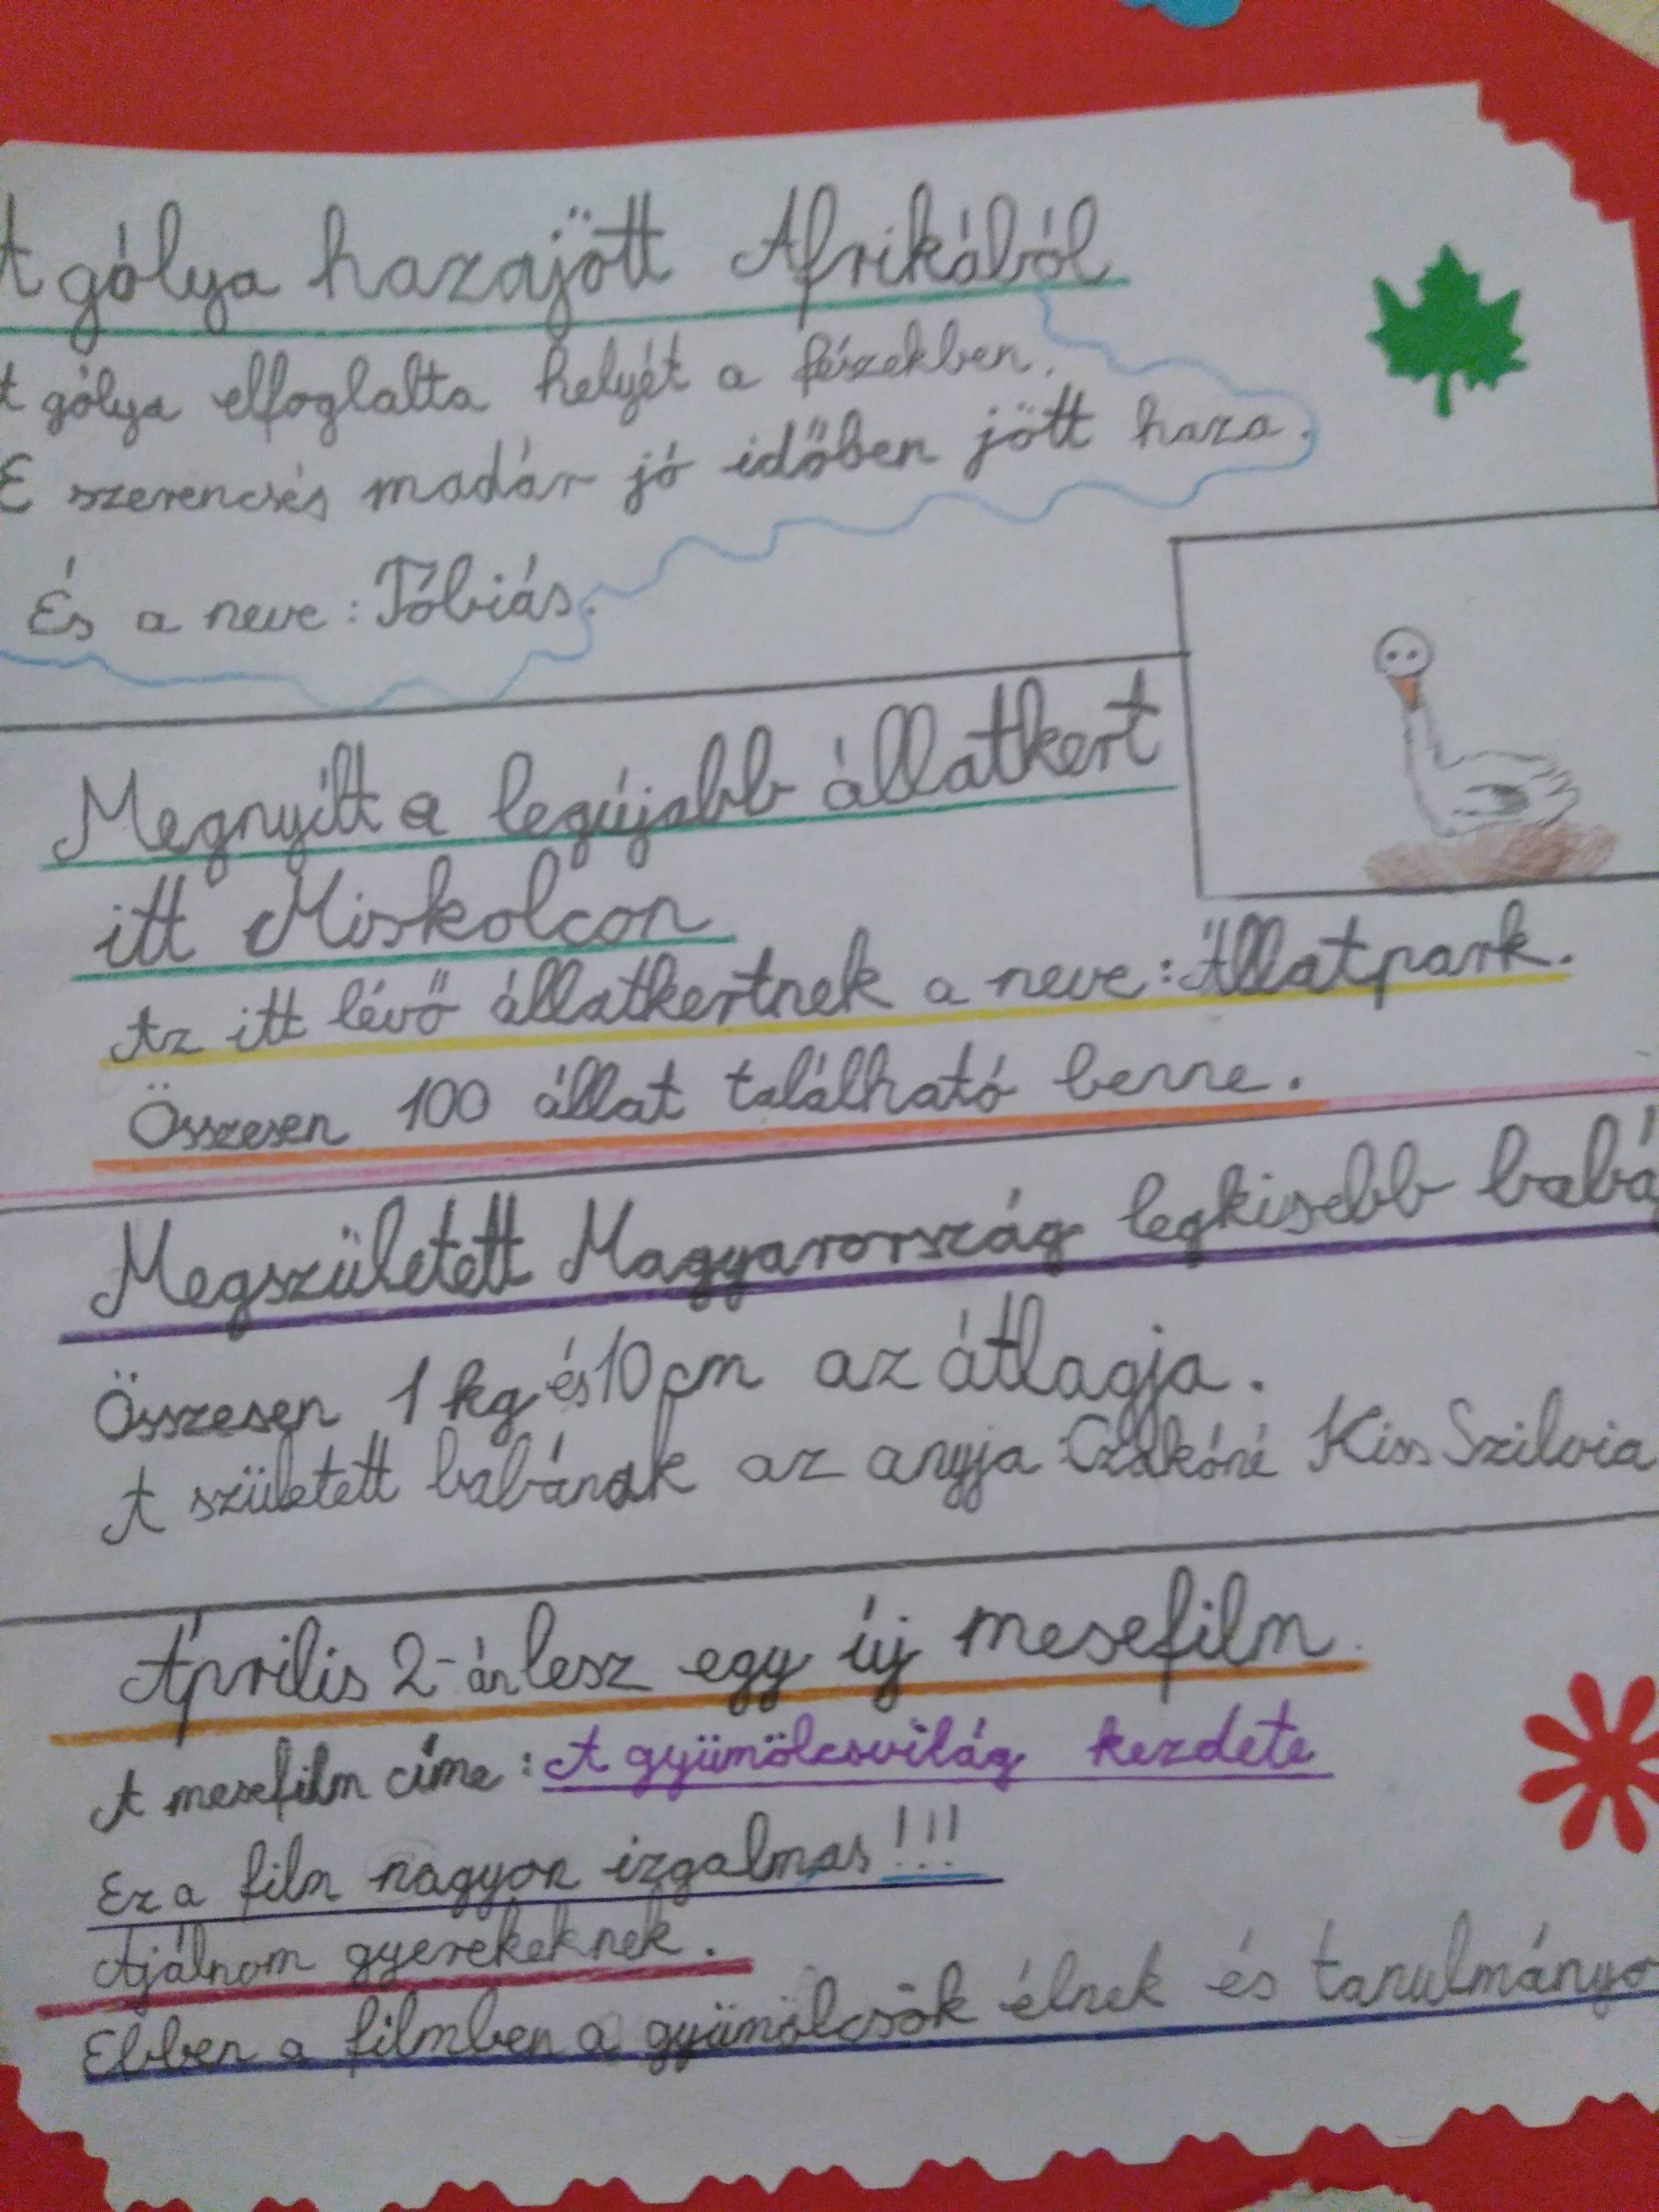 A gólya hazajött Afrikából
A gólya elfoglalta helyét a fészekben.
E szerencsés madár jó időben jött haza.
És a neve: Tóbiás.
Megnyílt a legújabb állatkert
itt Miskolcon
Az itt lévő állatkertnek a neve: Állatpark.
Összesen 100 állat található benne.
Megszületett Magyarország legkisebb babá
Összesen 1 kg és 10 cm az átlagja.
A született babának az anyja: Czakóné Kiss Szilvia
Április 2-án lesz egy új mesefilm.
A mesefilm címe: A gyümölcsvilág kezdete
Ez a film nagyon izgalmas!!!
Ajálnom gyerekeknek.
Ebben a filmben a gyümölcsök élnek és tanulmányo